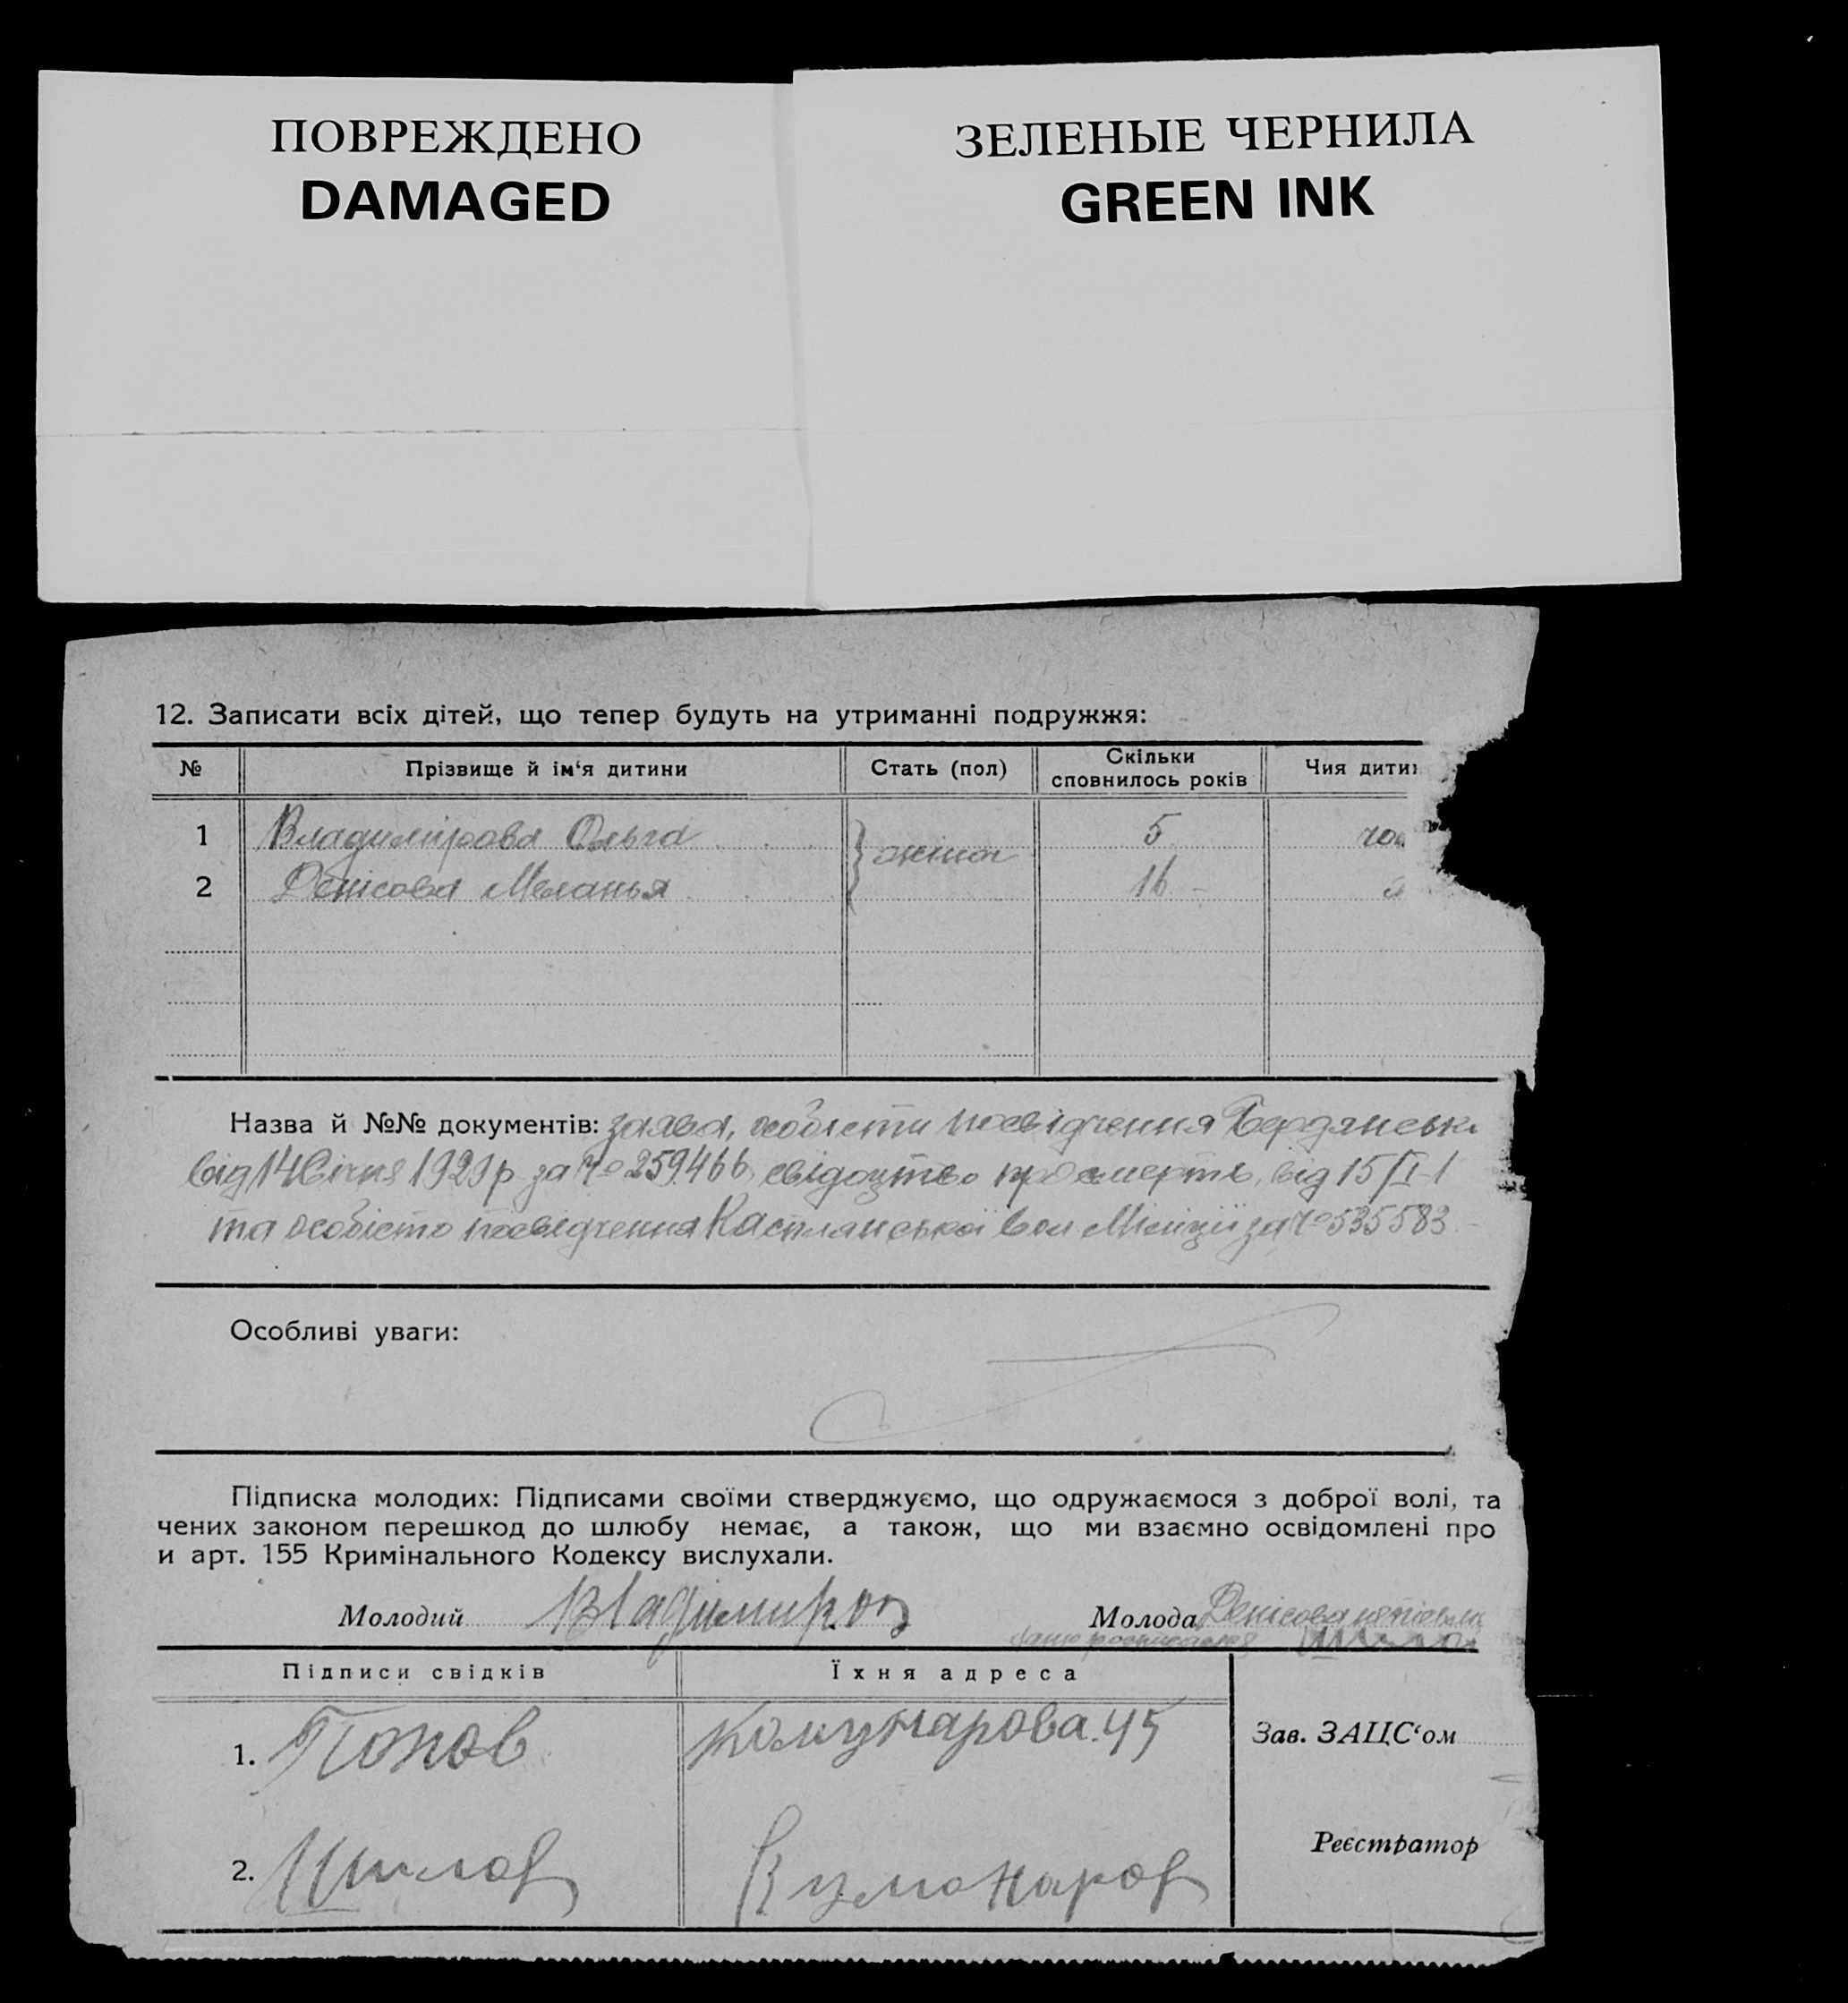 ПОВРЕЖДЕНО
DAMAGED
ЗЕЛЕНЫЕ ЧЕРНИЛА
GREEN INK
12. Записати всіх дітей, що тепер будуть на утриманні подружжя:
№ Прізвище й ім‘я дитини Стать (пол) Скільки сповнилось років Чия дити
1 Владимірова Ольга жіноч 5
2 Денісова Меланья 16
Назва й №№ документів: заява, особисти посвідчення Бердянськ
від 14 Січня 1929 р за № 259466, свідоцтво про смерть, від 15/I-1
та особісто посвідчення Касплянської вол Міліції за № 535583
Особливі уваги:
Підписка молодих: Підписами своїми стверджуємо, що одружаємося з доброї волі, та
чених законом перешкод до шлюбу немає, а також, що ми взаємно освідомлені про
и арт. 155 Кримінального Кодексу вислухали.
Молодий Владимиров Молода Денісова
Підписи свідків Їхня адреса
1. Попов Комунарова 45 Зав. ЗАЦС‘ом
2. Шилов Реєстратор